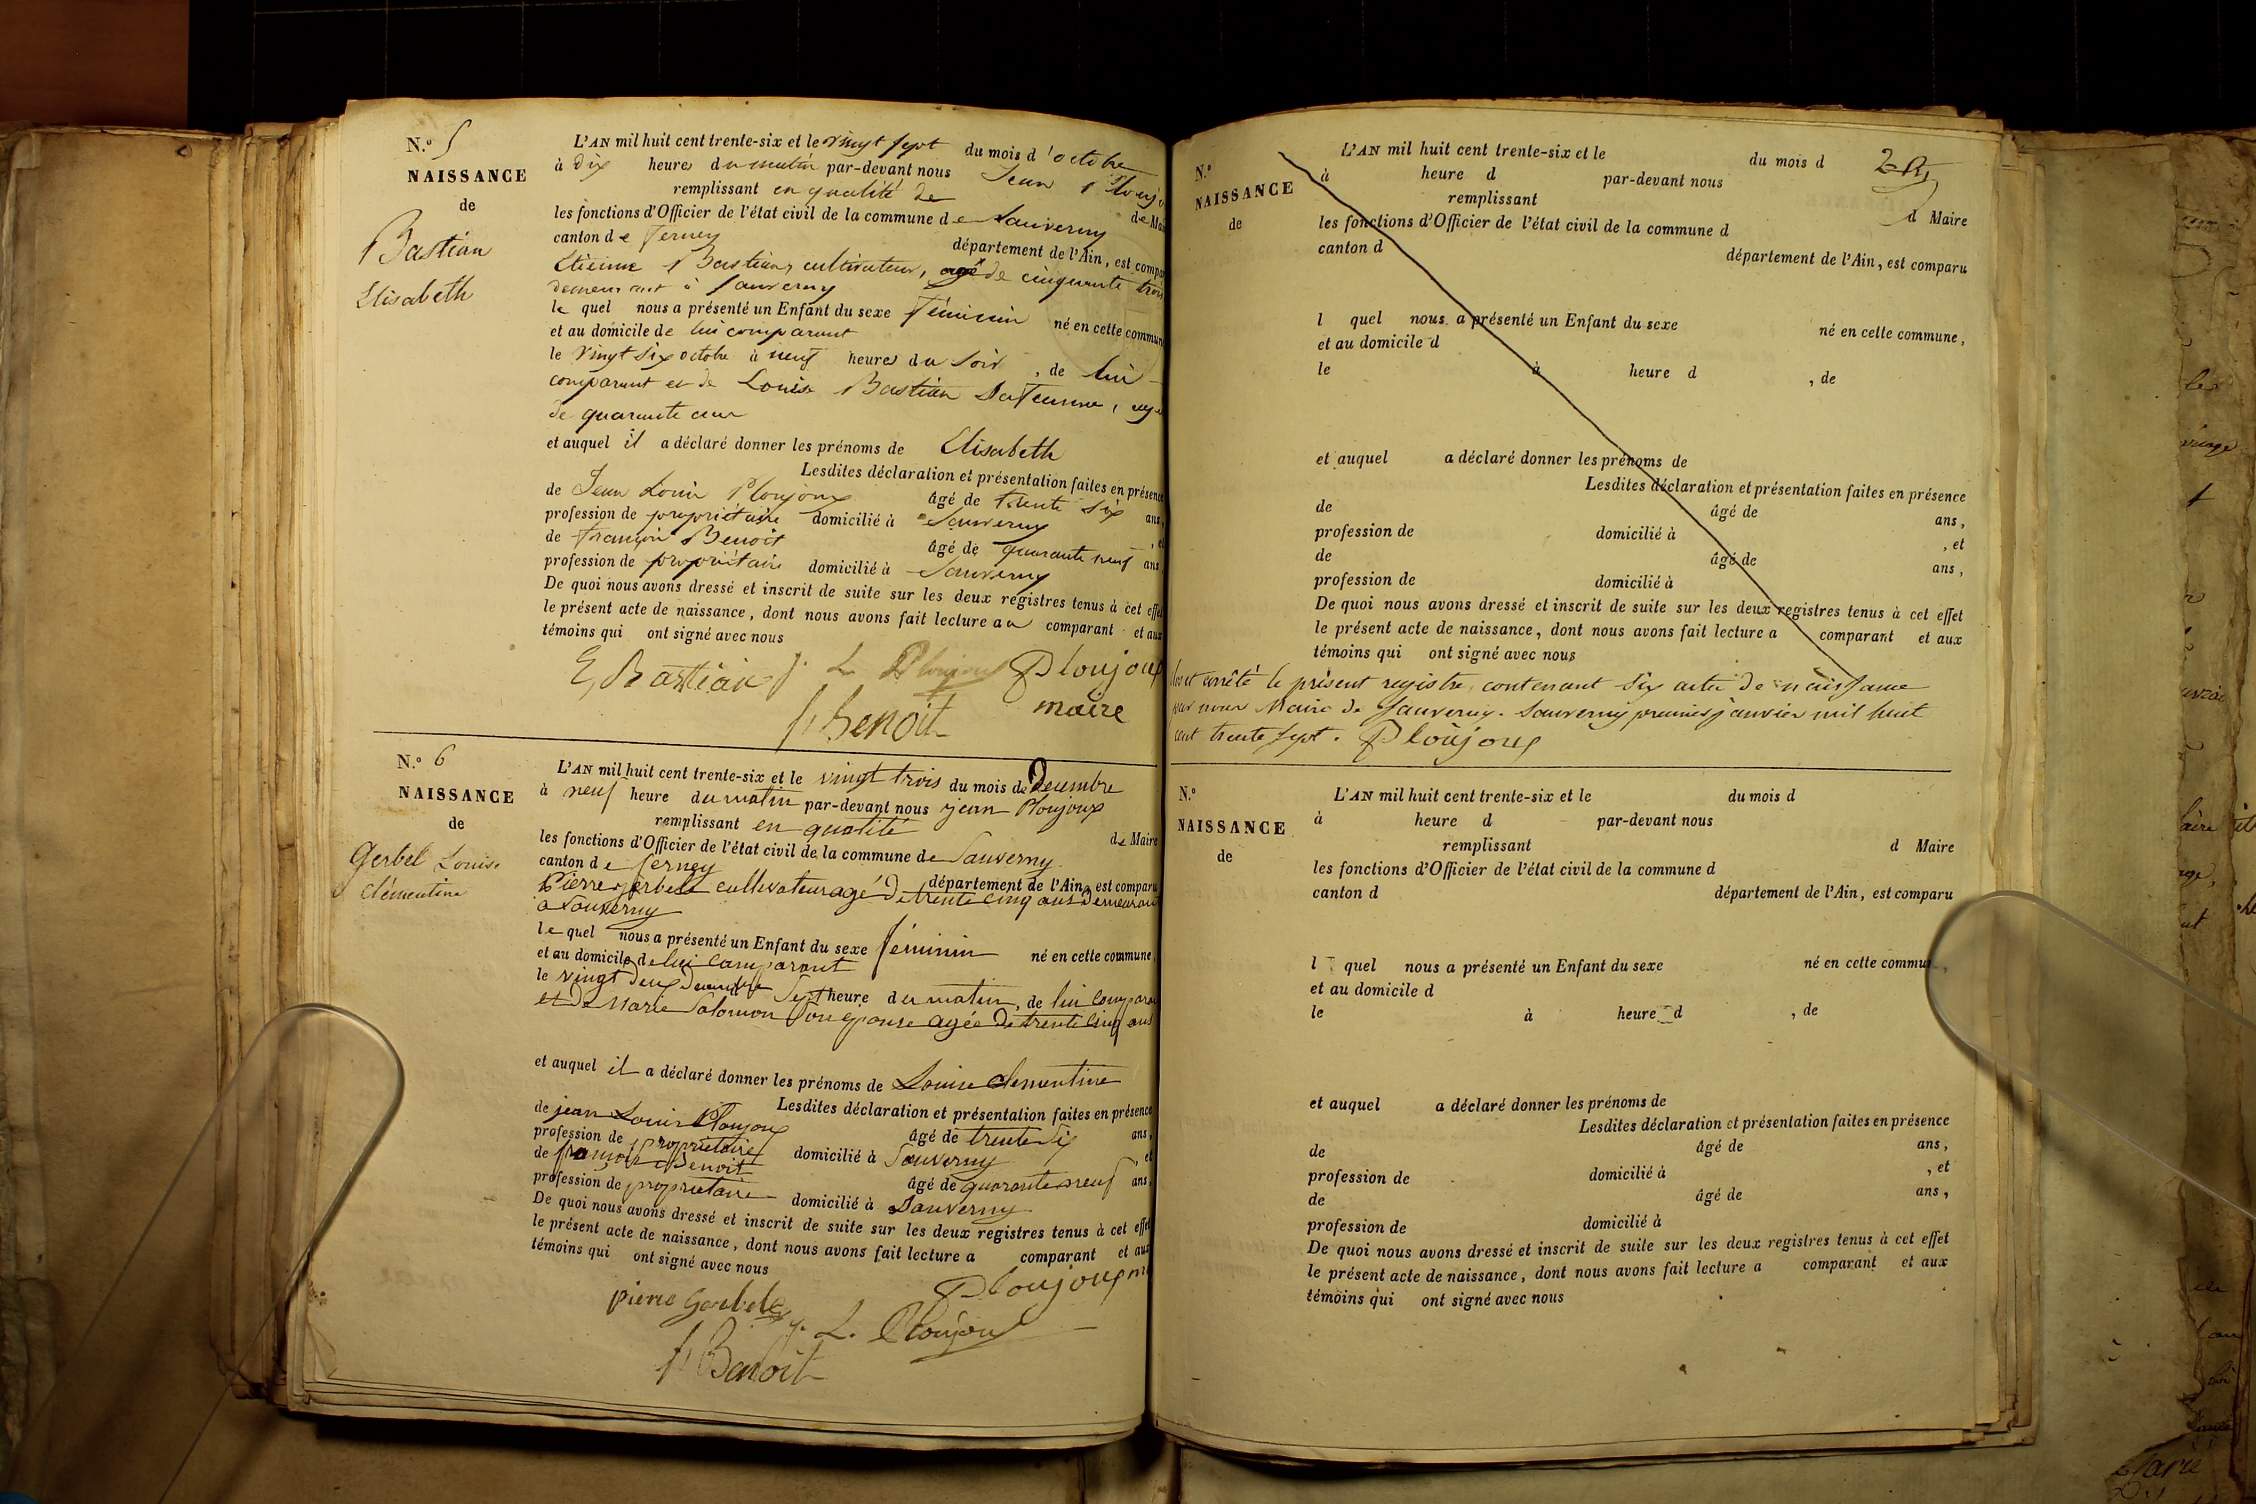 N.° 5
NAISSANCE
de
Bastian
Elisabeth
L'AN mil huit cent trente-six et le vingt sept du mois d'octobre
à dix heures du matin par-devant nous Jean Ploujoux
remplissant en qualité de de Maire
les fonctions d'Officier de l'état civil de la commune de Sauverny
canton de Ferney département de l'Ain, est comparu
Etienne Bastian, cultivateur, agé de cinquante trois
demeurant à Sauverny
le quel nous a présenté un Enfant du sexe féminin né en cette commune
et au domicile de lui comparant
le vingt six octobre à neuf heures du soir, de lui
comparant et de Louise Bastian sa femme, agée
de quarante un
et auquel il a déclaré donner les prénoms de Elisabeth
Lesdites déclaration et présentation faites en présence
de Jean Louis Ploujoux âgé de trente six ans,
profession de propriétaire domicilié à Sauverny, et
de françois Benoit âgé de quarante neuf ans
profession de propriétaire domicilié à Sauverny
De quoi nous avons dressé et inscrit de suite sur les deux registres tenus à cet effet
le présent acte de naissance, dont nous avons fait lecture au comparant et aux
témoins qui ont signé avec nous
E, Bastian J. L. Ploujoux Ploujoux
f Benoit maire
N.° 6
NAISSANCE
de
Gerbel Louise
Clémentine
L'AN mil huit cent trente-six et le vingt trois du mois de Decembre
à neuf heure du matin par-devant nous jean Ploujoux
remplissant en qualité de Maire
les fonctions d'Officier de l'état civil de la commune de Sauverny
canton de ferney département de l'Ain, est comparu
Pierre gerbel cultivateur agé De trente cinq ans Demeurant
a Sauverny
le quel nous a présenté un Enfant du sexe féminin né en cette commune,
et au domicile de lui comparant
le vingt deux decembre à sept heure du matin, de lui comparant
et De Marie Salomon Son epouse agée De trente cinq ans
et auquel il a déclaré donner les prénoms de Louise clementine
Lesdites déclaration et présentation faites en présence
de jean Louis Ploujoux âgé de trente six ans,
profession de Propriétaire domicilié à Sauverny, et
de françois Benoit âgé de quarante neuf ans,
profession de propriétaire domicilié à Sauverny
De quoi nous avons dressé et inscrit de suite sur les deux registres tenus à cet effet
le présent acte de naissance, dont nous avons fait lecture a comparant et aux
témoins qui ont signé avec nous
pierre Gerbel Ploujoux
J. L. Ploujoux
f Benoit
N.°
NAISSANCE
de
L'AN mil huit cent trente-six et le du mois d
à heure d par-devant nous
remplissant d Maire
les fonctions d'Officier de l'état civil de la commune d
canton d département de l'Ain, est comparu
l quel nous a présenté un Enfant du sexe né en cette commune,
et au domicile d
le à heure d , de
et auquel a déclaré donner les prénoms de
Lesdites déclaration et présentation faites en présence
de âgé de ans,
profession de domicilié à , et
de âgé de ans,
profession de domicilié à
De quoi nous avons dressé et inscrit de suite sur les deux registres tenus à cet effet
le présent acte de naissance, dont nous avons fait lecture a comparant et aux
témoins qui ont signé avec nous
clos et arrêté le présent registre, contenant six actes de naissance
par nous Maire de Sauverny. Sauverny premier janvier mil huit
cent trente sept. Ploujoux
N.°
NAISSANCE
de
L'AN mil huit cent trente-six et le du mois d
à heure d par-devant nous
remplissant d Maire
les fonctions d'Officier de l'état civil de la commune d
canton d département de l'Ain, est comparu
l quel nous a présenté un Enfant du sexe né en cette commune,
et au domicile d
le à heure d , de
et auquel a déclaré donner les prénoms de
Lesdites déclaration et présentation faites en présence
de âgé de ans,
profession de domicilié à , et
de âgé de ans,
profession de domicilié à
De quoi nous avons dressé et inscrit de suite sur les deux registres tenus à cet effet
le présent acte de naissance, dont nous avons fait lecture a comparant et aux
témoins qui ont signé avec nous